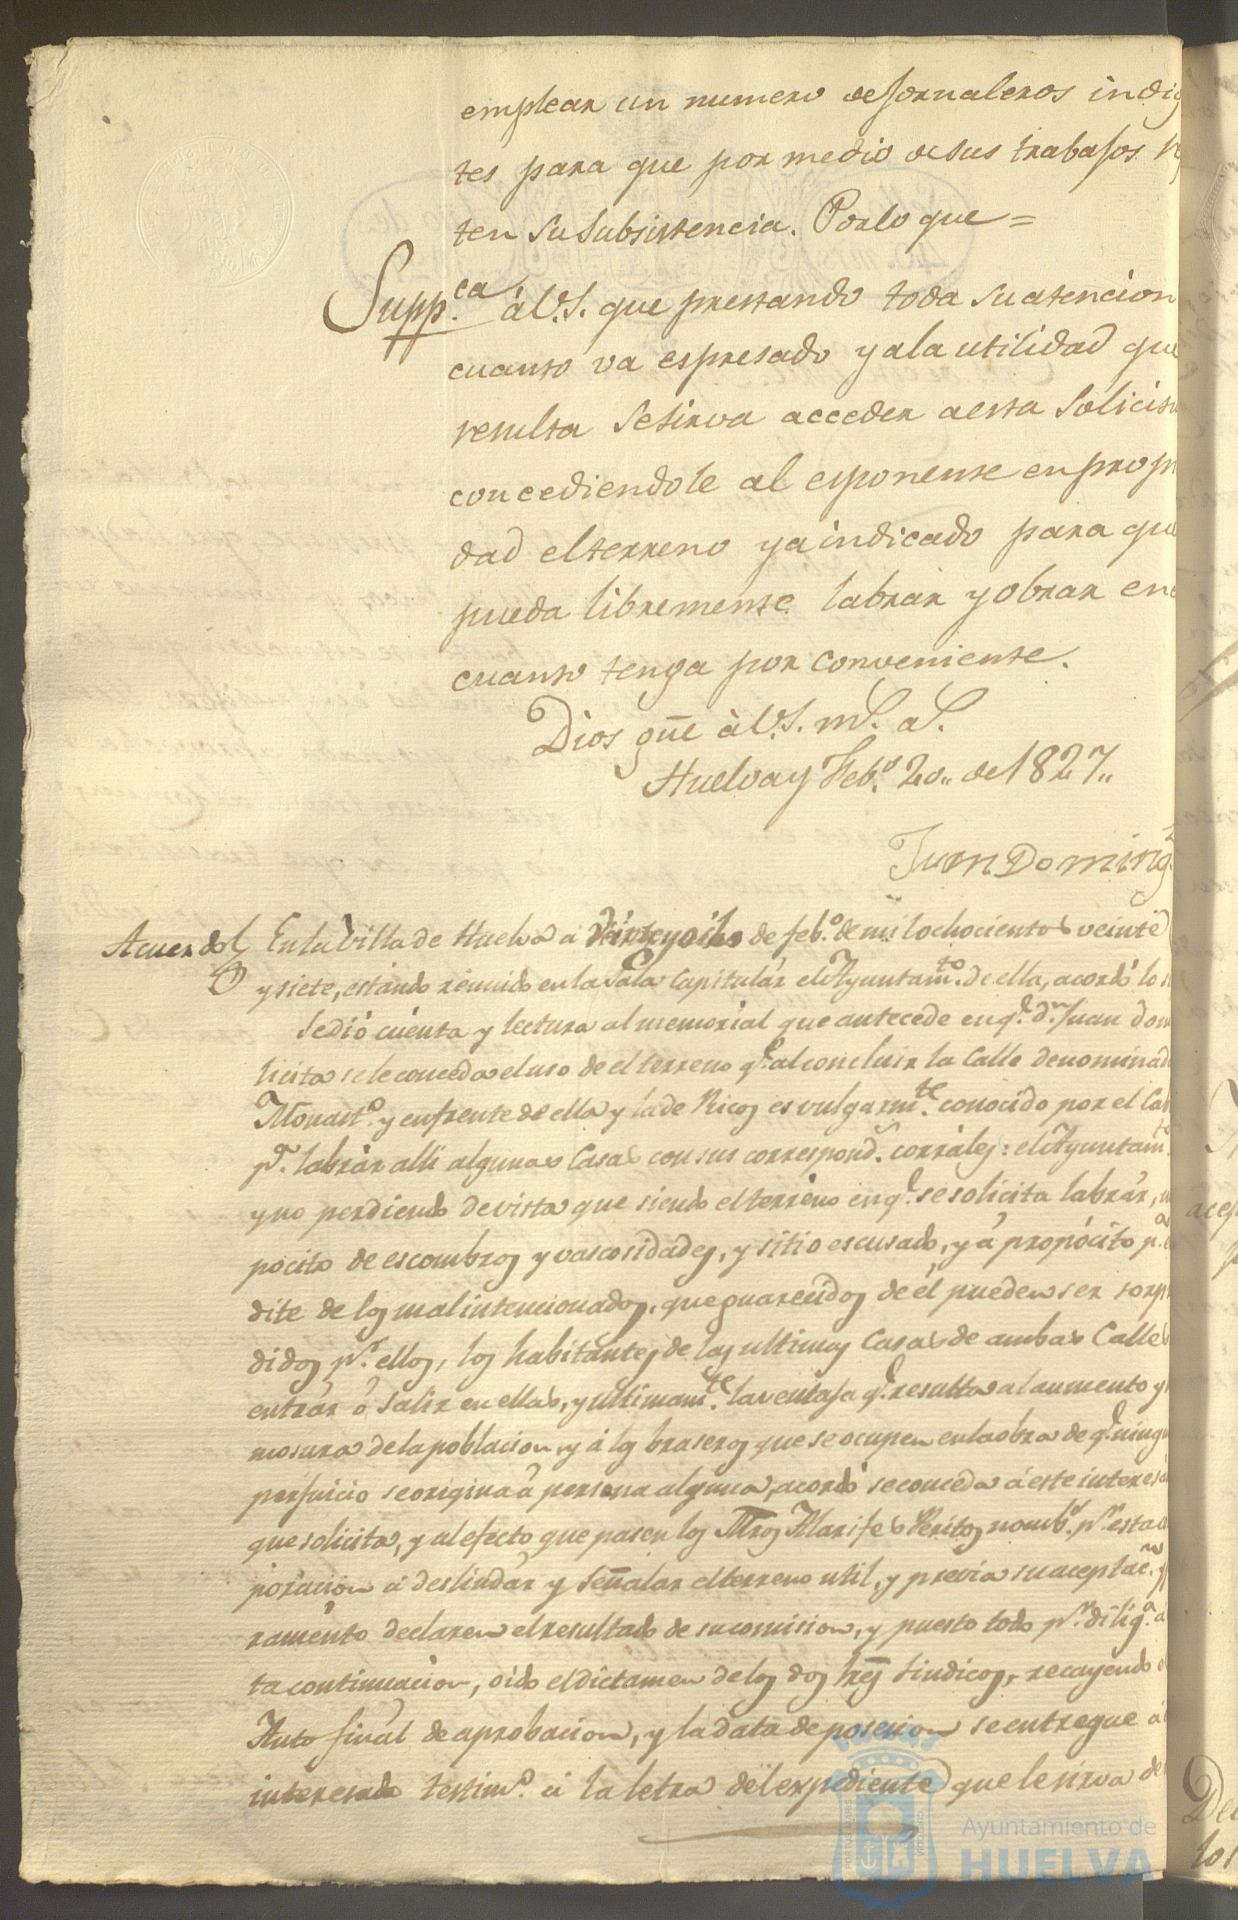 emplear un numero de Jornaleros indig
tes para que por medio de sus trabajos
ten su subsistencia. Por lo que =
Supp.ca á V.S. que prestando toda su atencion
cuanto va espresado y a la utilidad que
resulta se sirva acceder a esta solicitu
concediendole al esponente en propi
dad el terreno ya indicado para que
pueda libremente labrar y obrar en e
cuanto tenga por conveniente.
Dios gue à V.S. ms. as.
Huelva y Feb.o 20.. de 1827..
Juan Doming
Acuerdo En la villa de Huelva a veinte y ocho de feb.o de mil ochocientos veinte
y siete, estando reunido en la Sala Capitulár el Ayuntam.to de ella, acordó lo s
se dió cuenta y lectura al memorial que antecede en q.e d.n Juan dom
licita se le conceda el uso de el terreno q.e al concluir la Calle denominad
Monast.o y enfrente de ella y la de Ricos es vulgarm.te conocido por el Ca
p.a labrár alli algunas Casas con sus correspond.s corráles: el Ayuntam.to
y no perdiendo de vista que siendo el terréno en q.e se solicita labrár,
pocito de escombros y vascosidades, y sitio escusado, y á propócito p.a
dite de los mal intencionados, que guarecidos de él pueden ser sorp
didos p.r ellos, los habitántes de las ultimas Casas de ambas Calles
entrár ó salir en ellas, y ultimam.te la ventaja q.e resulta al aumento y
mosura de la poblacion, y á los braseros que se ocupen en la obra de q.e ning
perjuicio se origina á persona alguna, acordó se conceda á este interesa
que solicita, y al efecto que pasen los Mros Alarifes Peritos nomb.s p.r esta
poracion á deslindár y señalar el terreno util, y previa su aceptac.n y
ramento declaren el resultado de su comision, y puesto todo p.r dilig.a á
ta continuacion, oido el dictamen de los dos Sres Sindicos, recayendo e
Auto finál de aprobacion, y la data de posecion se entregue ál
interesado testim.o á la letra del expediente que le sirva de
acep
Del
los
Ayuntamiento de
HUELVA